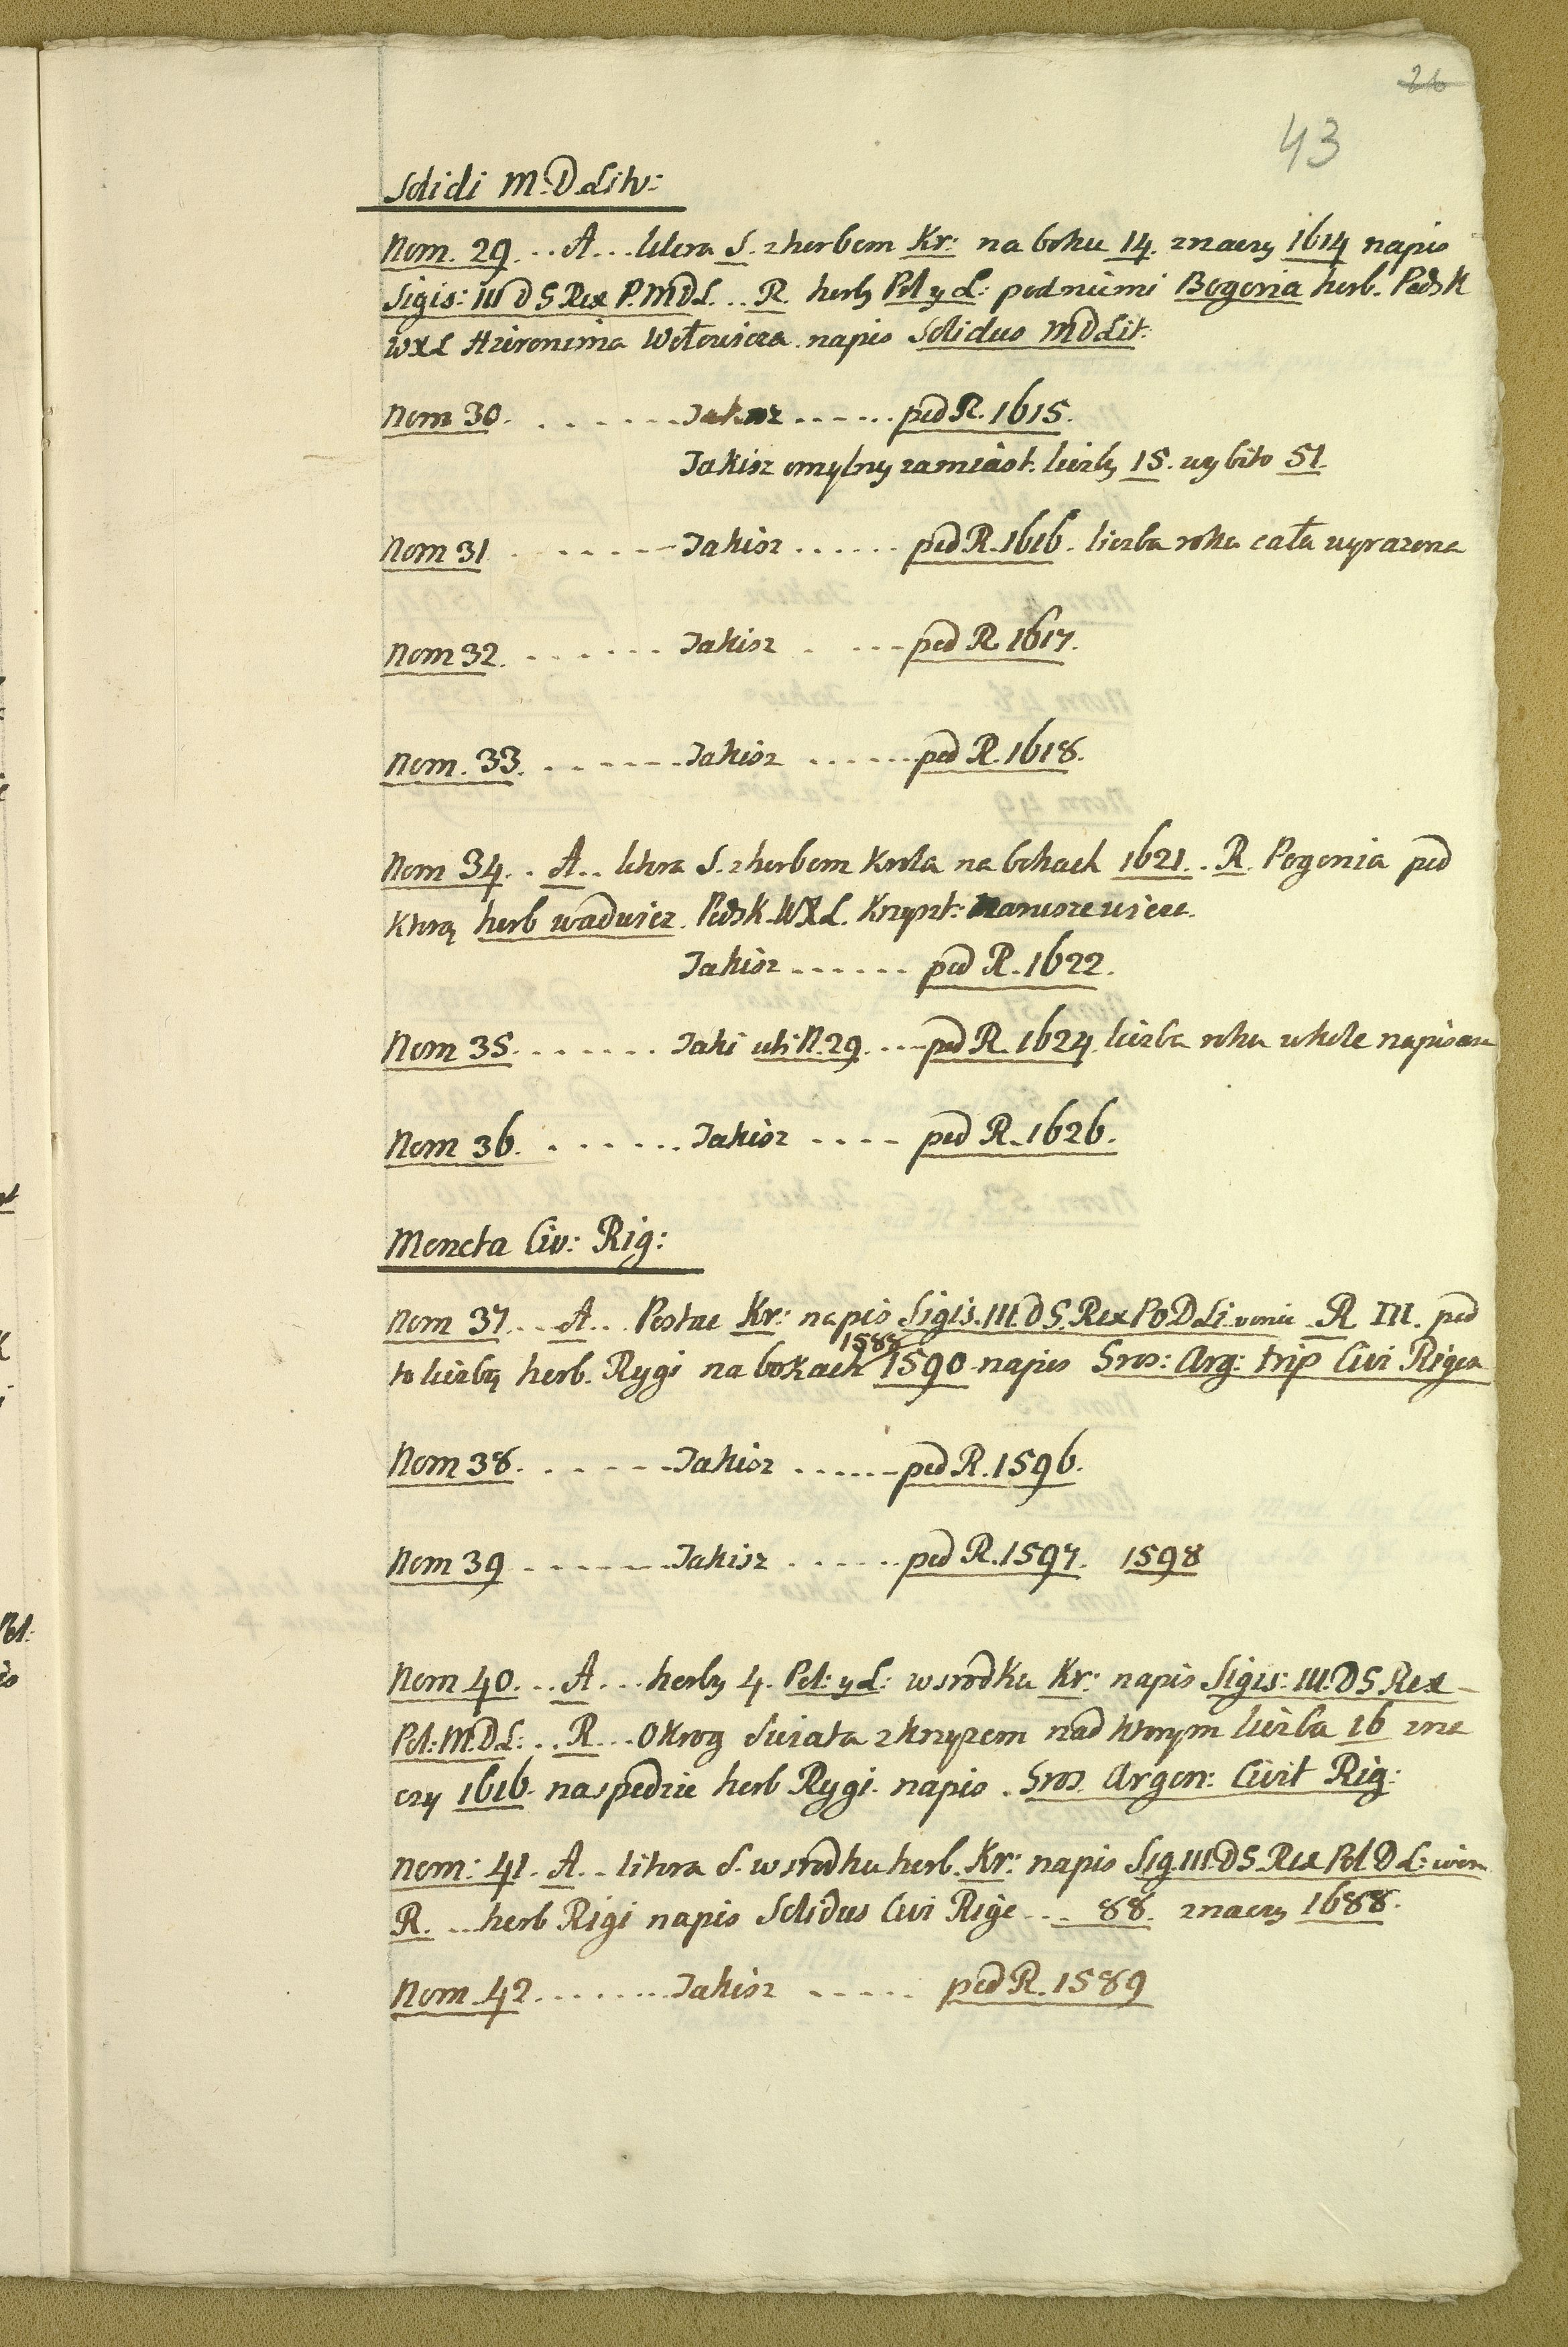 26
43
Solidi M.D.Litv:
Nom. 29...A...litera S. z herbem Kr: na boku 14. znaczy 1614 napis
Sigis: III D S Rex P.MDL... R. herby Pol y L: pod niemi Bogoria herb. Podsk
WXL Hieronima Wołowicza napis Solidus MDLit:
Nom 30. . . . . . . . Jakisz ...... pod R. 1615.
Jakisz omylny zamiast liczby 15. wybito 51.
Nom 31 . . . . . . . Jakisz ...... pod R. 1616. liczba roku cała wyrazona
Nom 32. . . . . . . Jakisz . ... pod R 1617.
Nom. 33. . . . . . . Jakisz ...... pod R. 1618.
Nom 34. . A.. litera S. z herbem Krola na bokach 1621. . R. Pogonia pod
Ktorą herb wadwicz. Podsk. WXL. Krzyszt: Naruszewicza.
Jakisz ...... pod R. 1622.
Nom 35. . . . . . . Jaki uti N. 29. ... pod R. 1624. liczba roku wkole napisana
Nom 36. . . . . . . Jakisz .... pod R. 1626.
Moneta Civ: Rig:
Nom 37...A.. Postac Kr: napis Sigis.III.D S.Rex PO D Li vonie R III. pod
1588
to liczbą herb. Rygi na bokach 1590 napis Gros: Arg: trip Civi Rigea
Nom 38. . . . . . Jakisz ...... pod R. 1596.
Nom 39 . . . . . . Jakisz ...... pod R. 1597. 1598
Nom 40...A... herby 4. Pol: y L: w srodku Kr: napis Sigis: III. D S Rex –
Pol: M.D.L:...R... Okrog Swiata z krzyzem nad ktorym liczba 16 zna
czy 1616. naspodzie herb Rygi. napis. Gros. Argen: Civit Rig:
Nom: 41. A.. litera S. w srodku herb. Kr: napis Sig.III.D S.Rex Pol D L: ivon
R. ...herb Rigi napis Solidus Civi Rige ... 88. znaczy 1688.
Nom. 42. . . . . . . . Jakisz ..... pod R. 1589